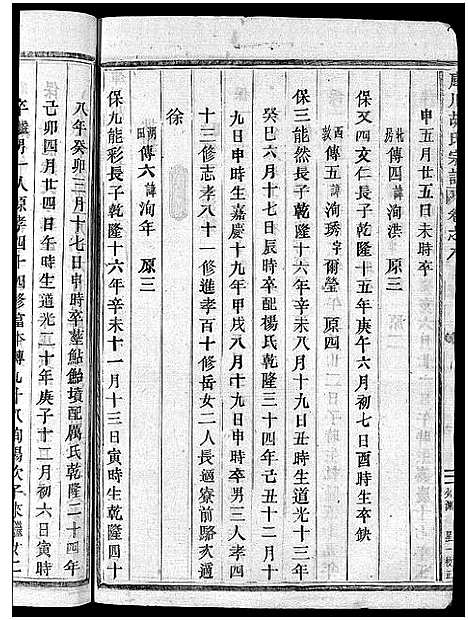 庫川胡氏宗譜 卷之八
申五月廿五日未時卒
牝房 傳四 諱洵洪 原三
保又四文仁長子乾隆十五年庚午六月初七日酉時生卒缺
西敦 傳五 諱洵琇字爾瑩 原四
保三能然長子乾隆十六年辛未八月十九日丑時生道光十三年
癸巳六月十七日辰時卒配楊氏乾隆三十四年己丑十二月十
九日申時生嘉慶十九年甲戌八月十九日申時卒男三人孝四
十三修志孝八十一修進孝百十修岳女二人長適寮前路次適
徐
湖田 傳六 諱洵年 原三
保九能彩長子乾隆十六年辛未十一月十三日寅時生乾隆四十
八年癸卯三月十七日申時卒葬鮎鮐墳配厲氏乾隆二十四年
己卯四月廿四日午時生道光二十年庚子十二月初六日寅時
卒繼男一人原孝四十四修富本傳九十八洵陽次子來繼女二